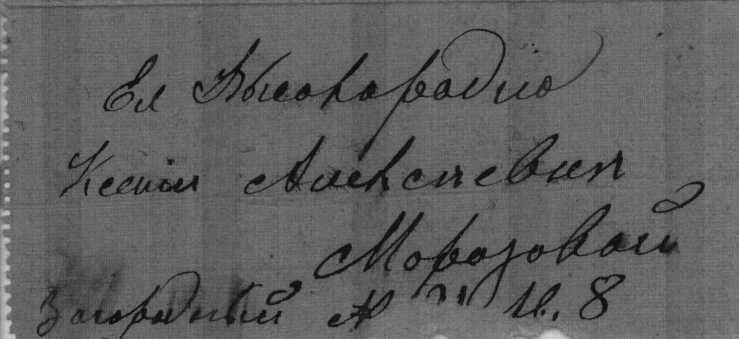 Ея Высокородію
Ксеніи Алексѣевнѣ
Морозовой
Загородный № кв. 8